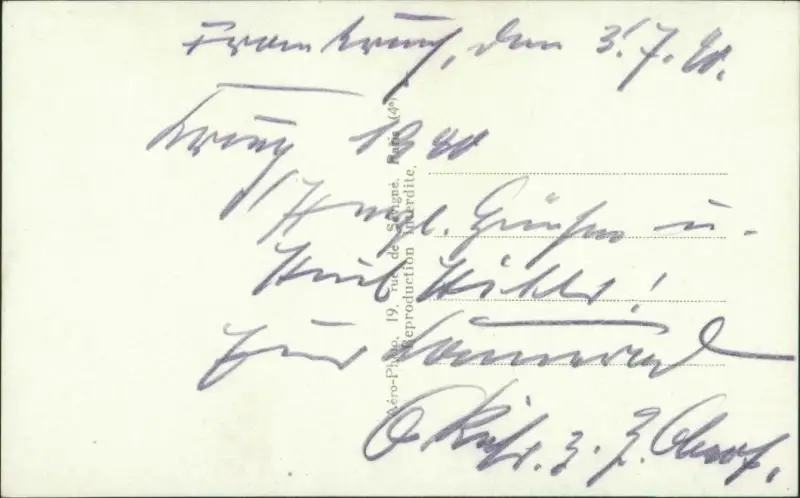 Frankreich, den 3.7.40.
Krieg 1940
Herzl. Grüßen u.
Heil Hitler!
Kamerad
z. Z.
Aéro-Photo, 19, rue de Sévigné, Paris (4e)
Reproduction interdite.